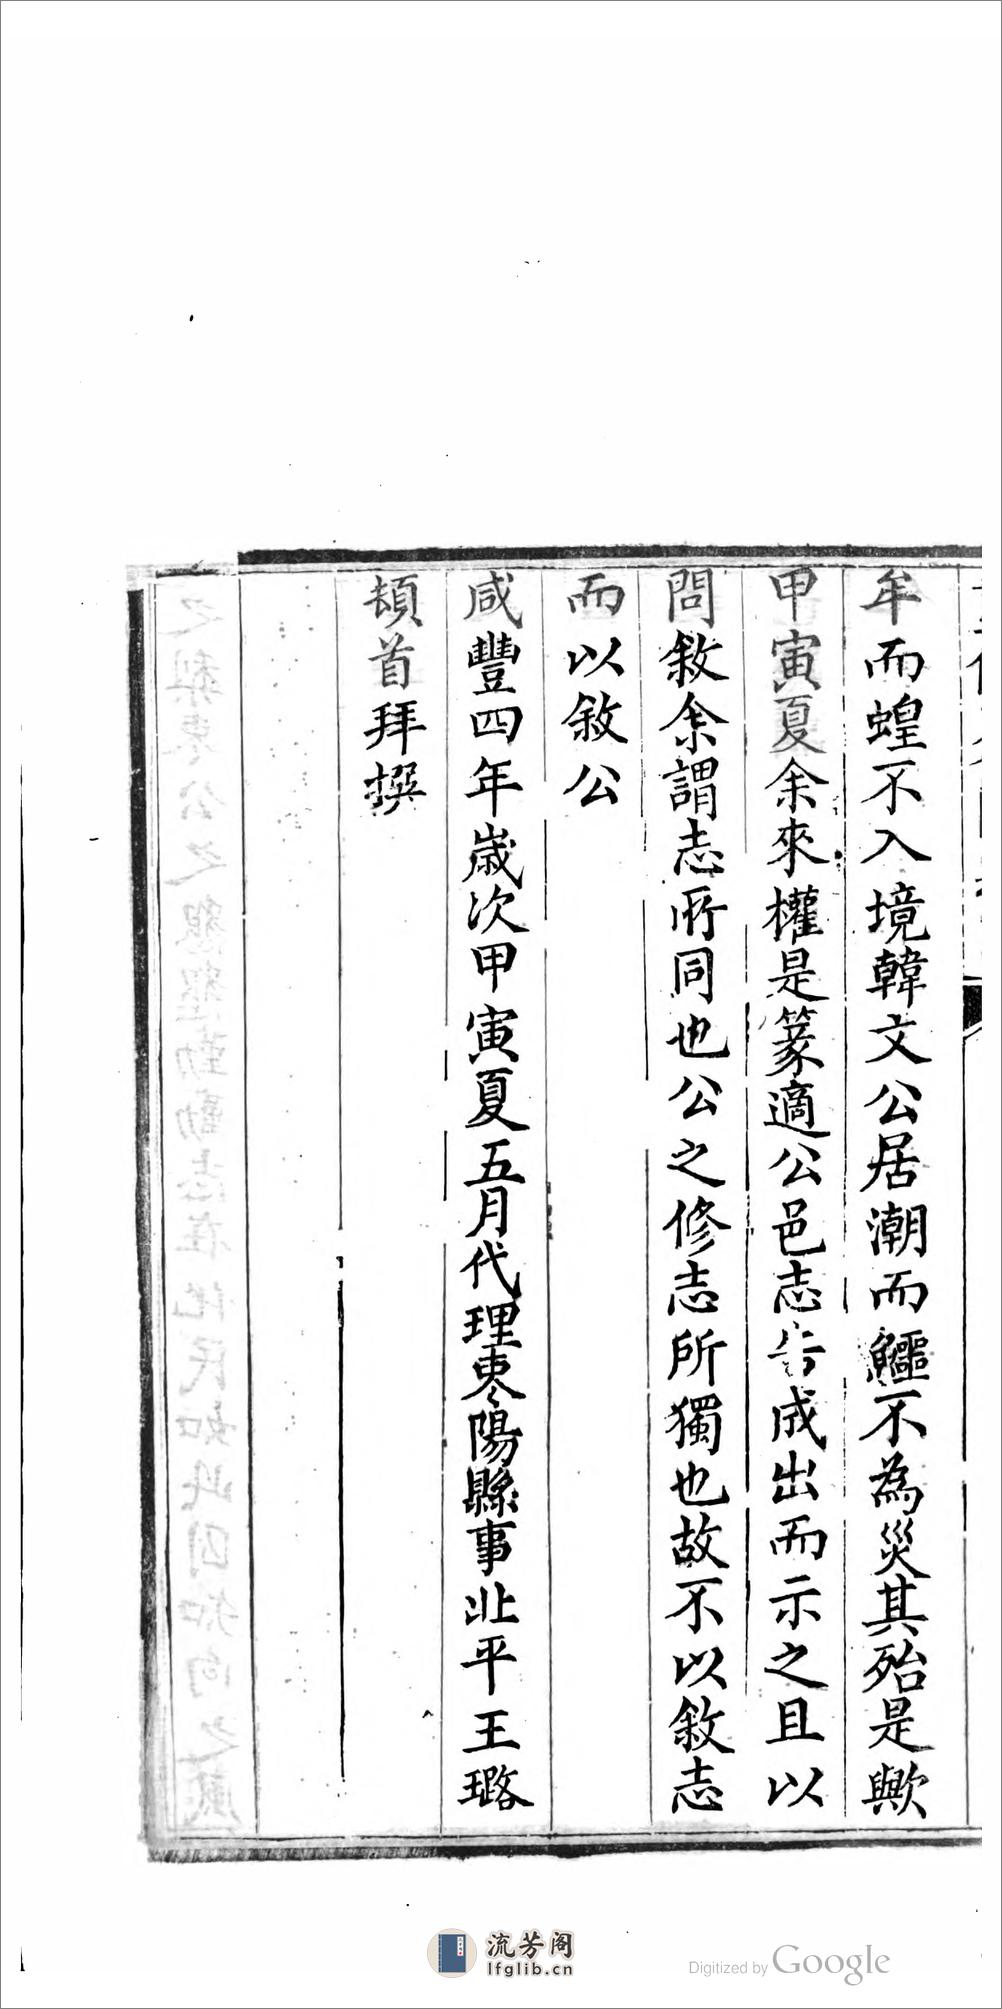 牟而蝗不入境韓文公居潮而鱷不為災其殆是歟
甲寅夏余來權是篆適公邑志告成出而示之且以
問敘余謂志所同也公之修志所獨也故不以敘志
而以敘公
咸豐四年歲次甲寅夏五月代理棗陽縣事北平王璐
頓首拜撰
流芳阁
lfglib.cn
Digitized by Google